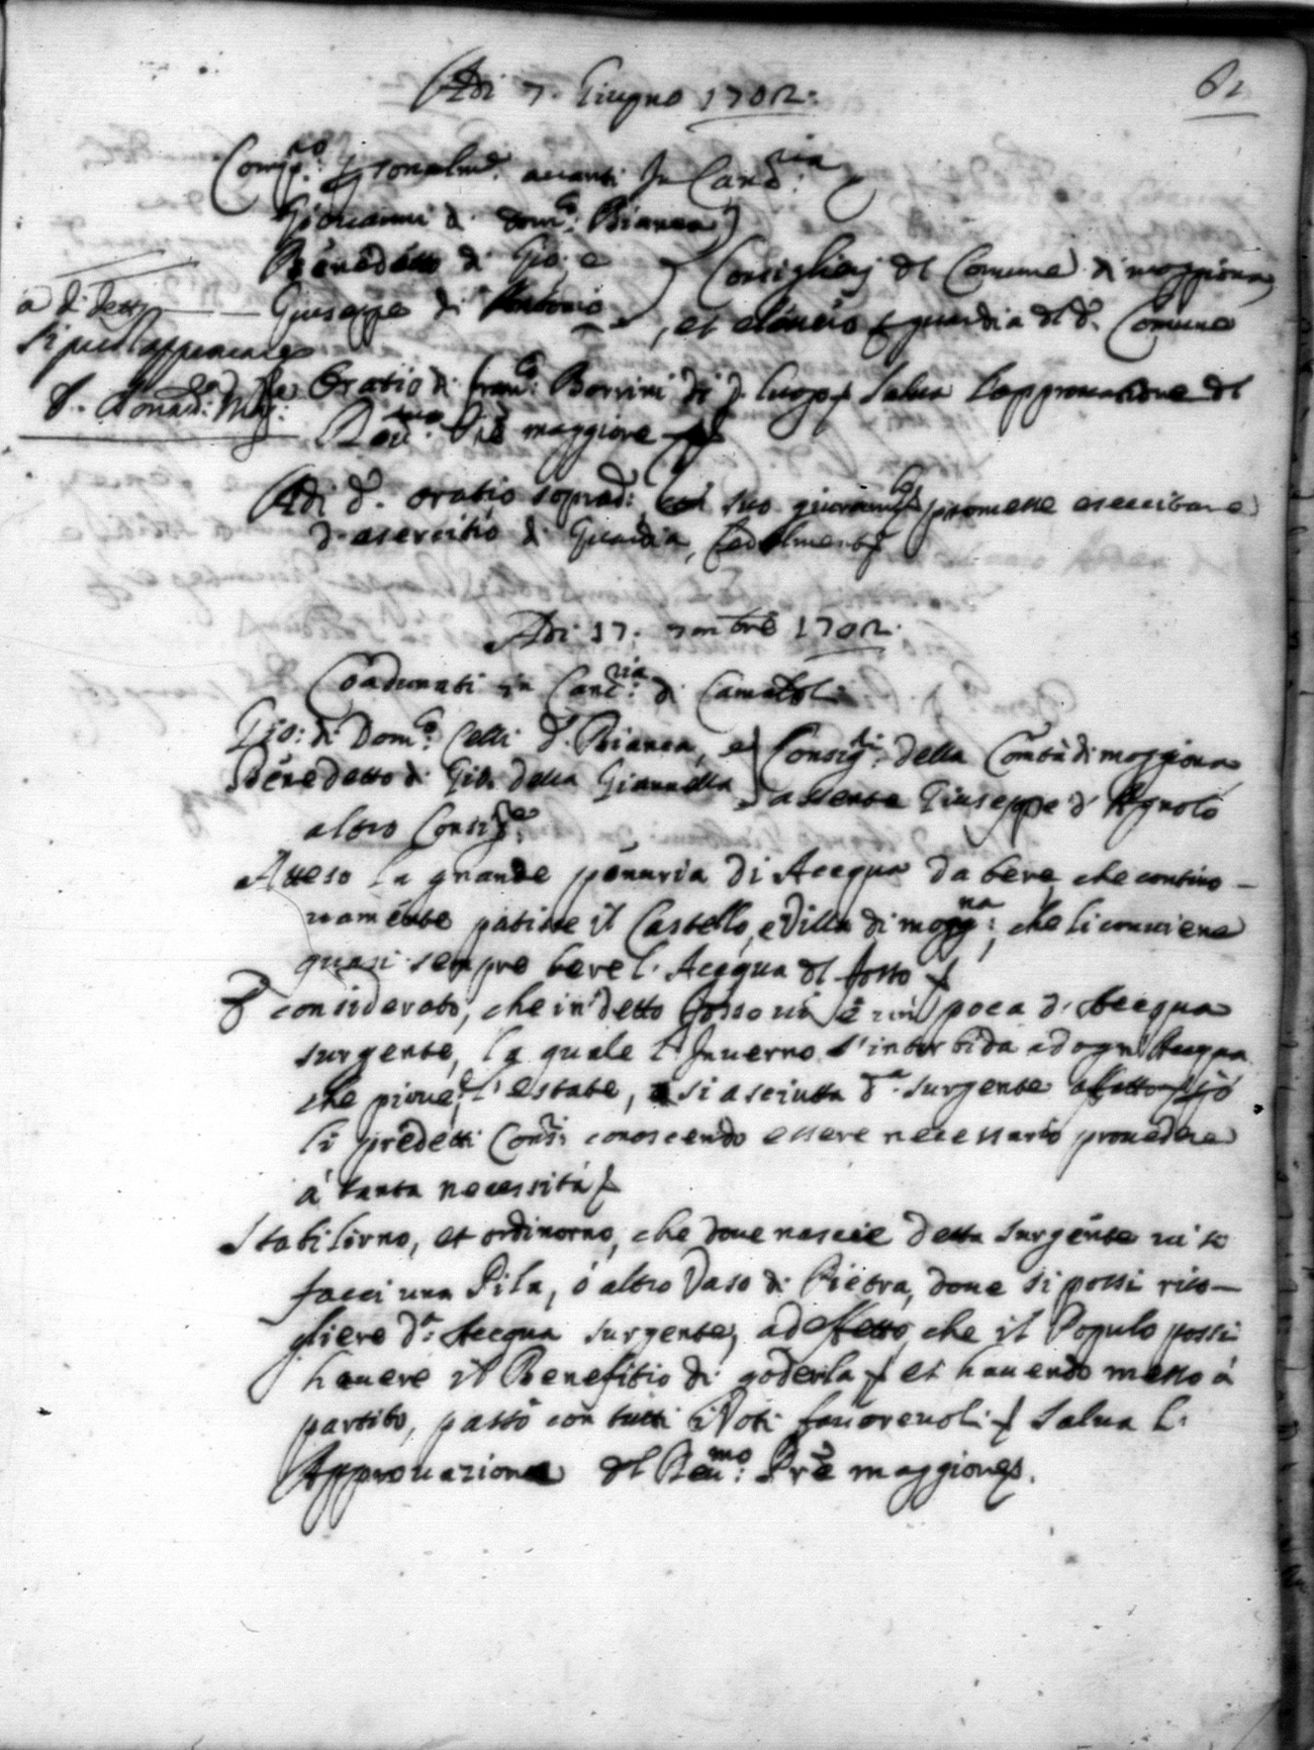 61
Adi 7. Giugno 1702.
Comp.no personalm.e auanti In Canc.ria
Giouanni di Dom.co Bianca
Benedetto di Gio: e
Giuseppe di Antonio
Consiglieri del Comune di moggiona,
et elessero p guardia del d.o Comune
a di detto
si può approuare
D. Mag.re
Oratio di Fran.co Borrini di d.o luogo, salua l'approuatione del
Reu.mo P̃re maggiore
Adi d.o oratio soprad.o col suo giuram.to promette esercitare
d.o esercitio di Guardia, fedelmente
Adi 17. 7mbre 1702.
Coadunati in Canc.ria di Camaldoli
Gio: di Dom.co Celli d.o Bianca, e
Benedetto di Gio: della Giannella
Consig.ri della Com̃tà di moggiona
assente Giuseppe d'Agnolo
altro Consig.re
Atteso la grande penuria di Acequa da bere, che contino-
uamente patisce il Castello, e Villa di mogg.na: che li conuiene
quasi sempre bere l'Acequa del fosso
E considerato, che in detto fosso ui è un poca d'Acequa
surgente, la quale l'Inuerno s'intorbida ad ogni Acequa
che pioue, e l'estate, si asciutta d.a surgente affatto
li predetti Cons.ri conoscendo essere necessario prouedere
à tanta necessità
Stabilirno, et ordinorno, che doue nascie detta surgente ui si
facci una Pila, ò altro Vaso di Pietra, doue si possi rico-
gliere d.a Acequa surgente, ad effetto, che il Populo possi
hauere il Benefitio di goderla, et hauendo messo à
partito, passò con tutti i Voti fauoreuoli, salua l'
Approuazione del Reu.mo P̃re maggiore.